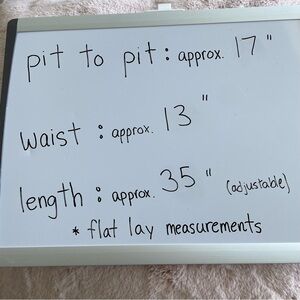 pit to pit : approx. 17 "
waist : approx. 13 "
length : approx. 35 " (adjustable)
* flat lay measurements